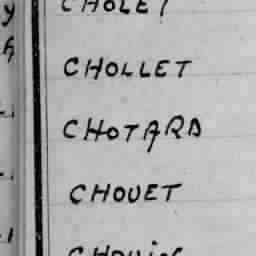 CHOLET
CHOLLET
CHOTARD
CHOUET